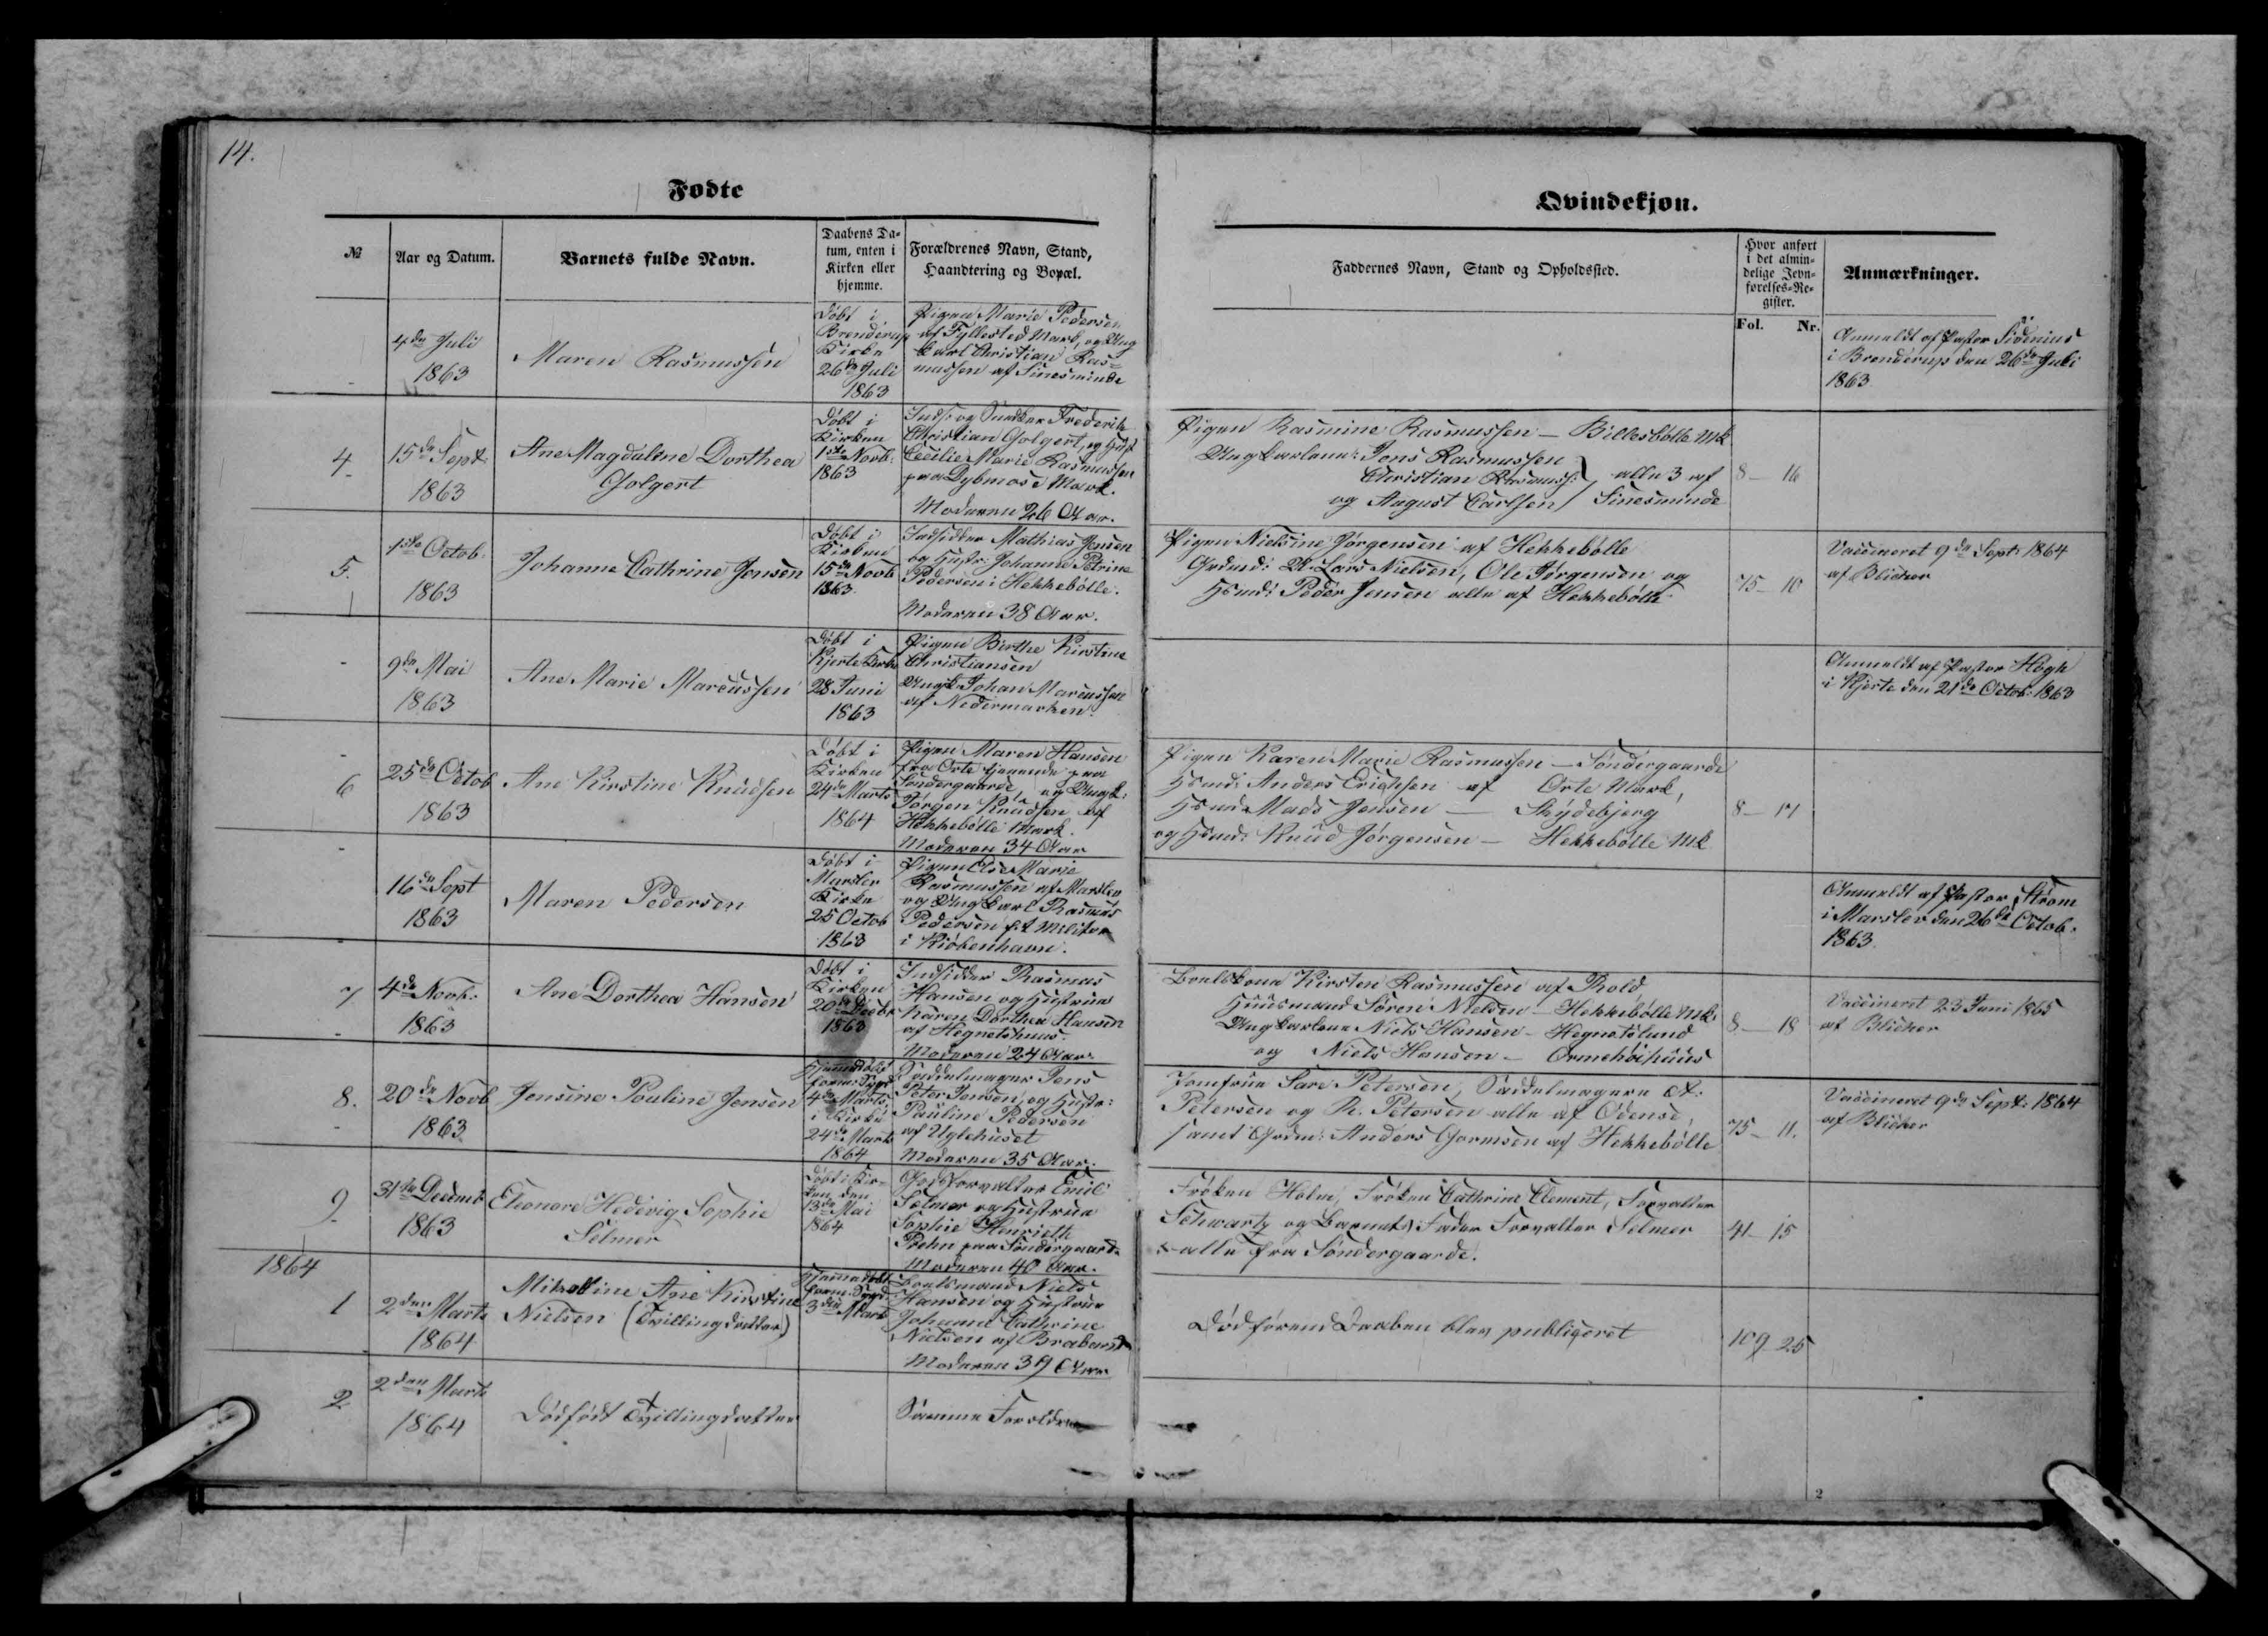 14.
Fødte
Qvindekjøn.
№
Aar og Datum.
Barnets fulde Navn.
Daabens Da-
tum, enten i
Kirken eller
hjemme.
Forældrenes Navn, Stand,
Haandtering og Bopæl.
Faddernes Navn, Stand og Opholdssted.
Hvor anført
i det almin-
delige Jevn-
førelses-Re-
gister.
Fol. Nr.
Anmærkninger.
4de Juli
1863
Maren Rasmussen
Døbt i
Brenderup
Kirke
26de Juli
1863
Pigen Marie Pedersen
af Fyllested Mark, og Ung
karl Christian Ras-
mussen af Sinesminde
Anmeldt af Pastor Sidenius
i Brenderup den 26de Juli
1863
4.
15de Sept.
1863
Ane Magdalene Dorthea
Golgert
Døbt i
Kirken
1ste Novb.
1863
Inds. og Snedker Frederik
Christian Golgert, og Hust
Cecilie Marie Rasmussen
paa Dybmose Mark.
Moderen 26 Aar.
Pigen Rasmine Rasmussen — Billesbølle Mk
Ungkarlene: Jens Rasmussen
Christian Rasmuss: alle 3 af
og August Carlsen Sinesminde
8 — 16
5.
1ste Octob.
1863
Johanne Cathrine Jensen
Døbt i
Kirken
15de Novb
1863
Indsidder Mathias Jensen
og Hustr: Johanne Petrine
Pedersen i Hekkebølle.
Moderen 38 Aar.
Pigen Nielsine Jørgensen af Hekkebølle
Grdmd: Lars Nielsen, Ole Jørgensen og
Hsmd: Peder Jensen alle af Hekkebølle
75 — 10
Vaccineret 9de Sept: 1864
af Blicher
9de Mai
1863
Ane Marie Marcussen
Døbt i
Kjerte Kirke
28 Juni
1863
Pigen Birthe Kirstine
Christiansen
Ungk. Johan Marcussen
af Nedermarken.
Anmeldt af Pastor Høgh
i Kjerte den 21de Octob. 1863
6
25de Octob
1863
Ane Kirstine Knudsen
Døbt i
Kirken
24de Marts
1864
Pigen Maren Hansen
fra Orte tjenende paa
Søndergaarde, og Ungk:
Jørgen Knudsen af
Hekkebølle Mark.
Moderen 34 Aar
Pigen Karen Marie Rasmussen — Søndergaarde
Hsmd: Anders Erichsen af Orte Mark,
Hsmd: Mads Jensen — Skydebjerg
og Hsmd: Knud Jørgensen — Hekkebølle Mk
8 — 17
16de Sept
1863
Maren Pedersen
Døbt i
Marslev
Kirke
25 Octob
1863
Pigen Else Marie
Rasmussen af Marslev
og Ungkarl Rasmus
Pedersen f: t. Militær
i Kiøbenhavn.
Anmeldt af Pastor Strøm
i Marslev den 26de Octob.
1863.
7
4de Novb.
1863
Ane Dorthea Hansen
Døbt i
Kirken
20de Decbr
1863
Indsidder Rasmus
Hansen og Hustrue
Karen Dorthea Hansen
af Hegnetshuus.
Moderen 24 Aar.
Boelskone Kirsten Rasmussen af Rold
Huusmand Søren Nielsen — Hekkebølle Mk:
Ungkarlene Niels Hansen — Hegnetslund
og Niels Hansen — Ormehøihuus
8 — 18
Vaccineret 23 Juni 1865
af Blicher
8.
20de Novb
1863
Jensine Pouline Jensen
Hjemmedøbt
4de Marts
i Kirke
24de Marts
1864
Saddelmager Jens
Peter Jensen, og Hustr:
Pauline Pedersen
af Uglehuset
Moderen 35 Aar.
Jomfrue Sare Petersen, Saddelmagere A:
Petersen og R. Petersen alle af Odense,
samt Grdm: Anders Gormsen af Hekkebølle
75 — 11.
Vaccineret 9de Sept: 1864
af Blicher
9.
31te Decemb
1863
Eleonore Hedevig Sophie
Selmer
Døbt i Kir-
ken den
13de Mai
1864
Godsforvalter Emil
Selmer og Hustrue
Sophie Henriette
Prehn paa Søndergaarde
Moderen 40 Aar.
Frøken Holm, Frøken Cathrine Clement, Forvalter
Schwartz og Barnets Fader Forvalter Selmer
— alle fra Søndergaarde.
41 — 15
1864
1
2den Marts
1864
Mikoline Ane Kirstine
Nielsen (Tvillingdatter)
Hjemmedøbt
3die Marts
Boelsmand Niels
Hansen og Hustrue
Johanne Cathrine
Nielsen af Brabæn
Moderen 39 Aar
Død førend Daaben blev publiceret
109 25
2
2den Marts
1864
Dødfødt Tvillingdatter
Samme Forældre
2